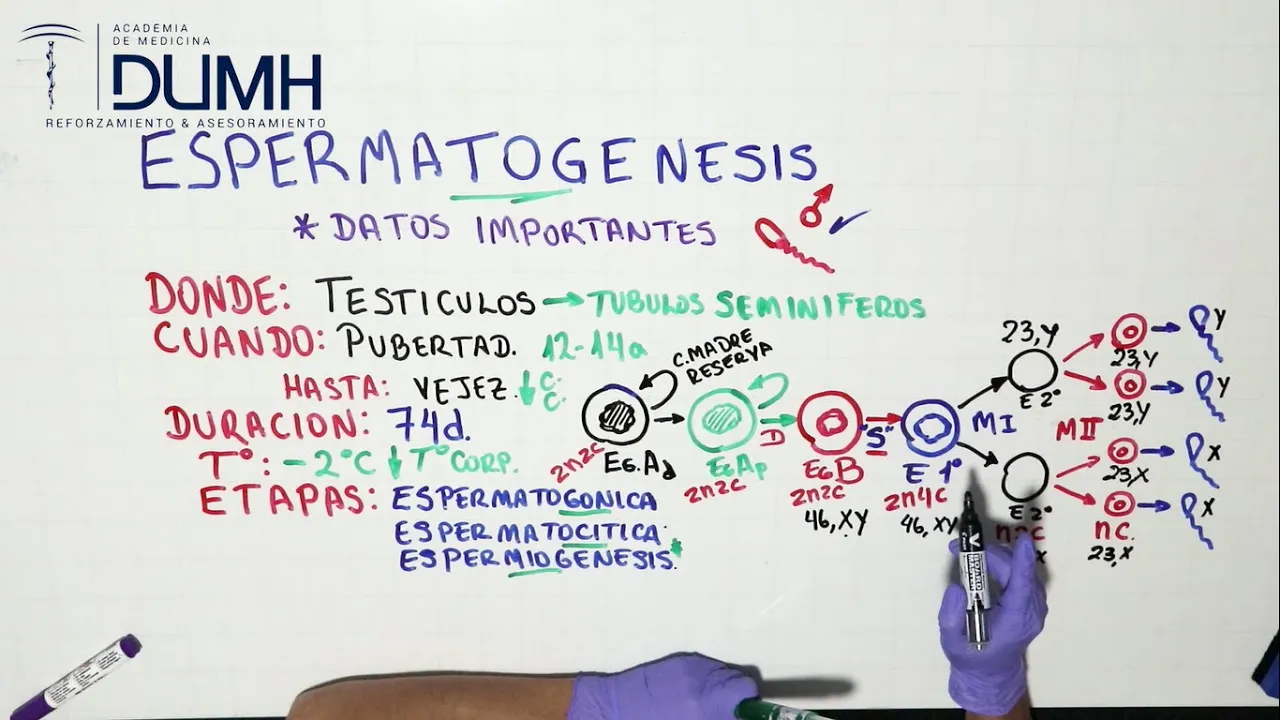 ACADEMIA
DE MEDICINA
DUMH
REFORZAMIENTO & ASESORAMIENTO
ESPERMATOGENESIS
* DATOS IMPORTANTES
DONDE: TESTICULOS → TUBULOS SEMINIFEROS
CUANDO: PUBERTAD. 12-14a
HASTA: VEJEZ. ↓ C. C.
DURACION: 74d.
T°: -2°C ↓ T° CORP.
ETAPAS: ESPERMATOGONICA
ESPERMATOCITICA
ESPERMIOGENESIS.*
C. MADRE
RESERVA
EG.Ad
2n2c
EGAp
2n2c
D
EGB
2n2c
46, XY
"S"
E 1°
2n4c
46, XY
MI
23,Y
E 2°
E 2°
MII
23,Y
23,Y
23,X
nc.
23,X
Y
Y
X
X
BOARD
MASTER